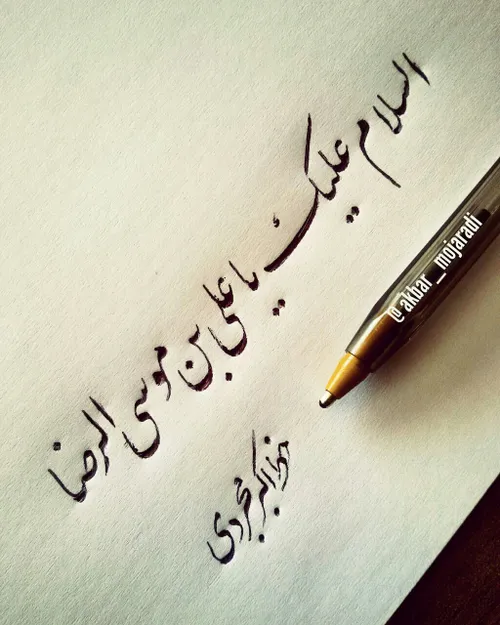 السلام علیک یا علی بن موسی الرضا
اکبر مجردی
@akbar_mojaradi